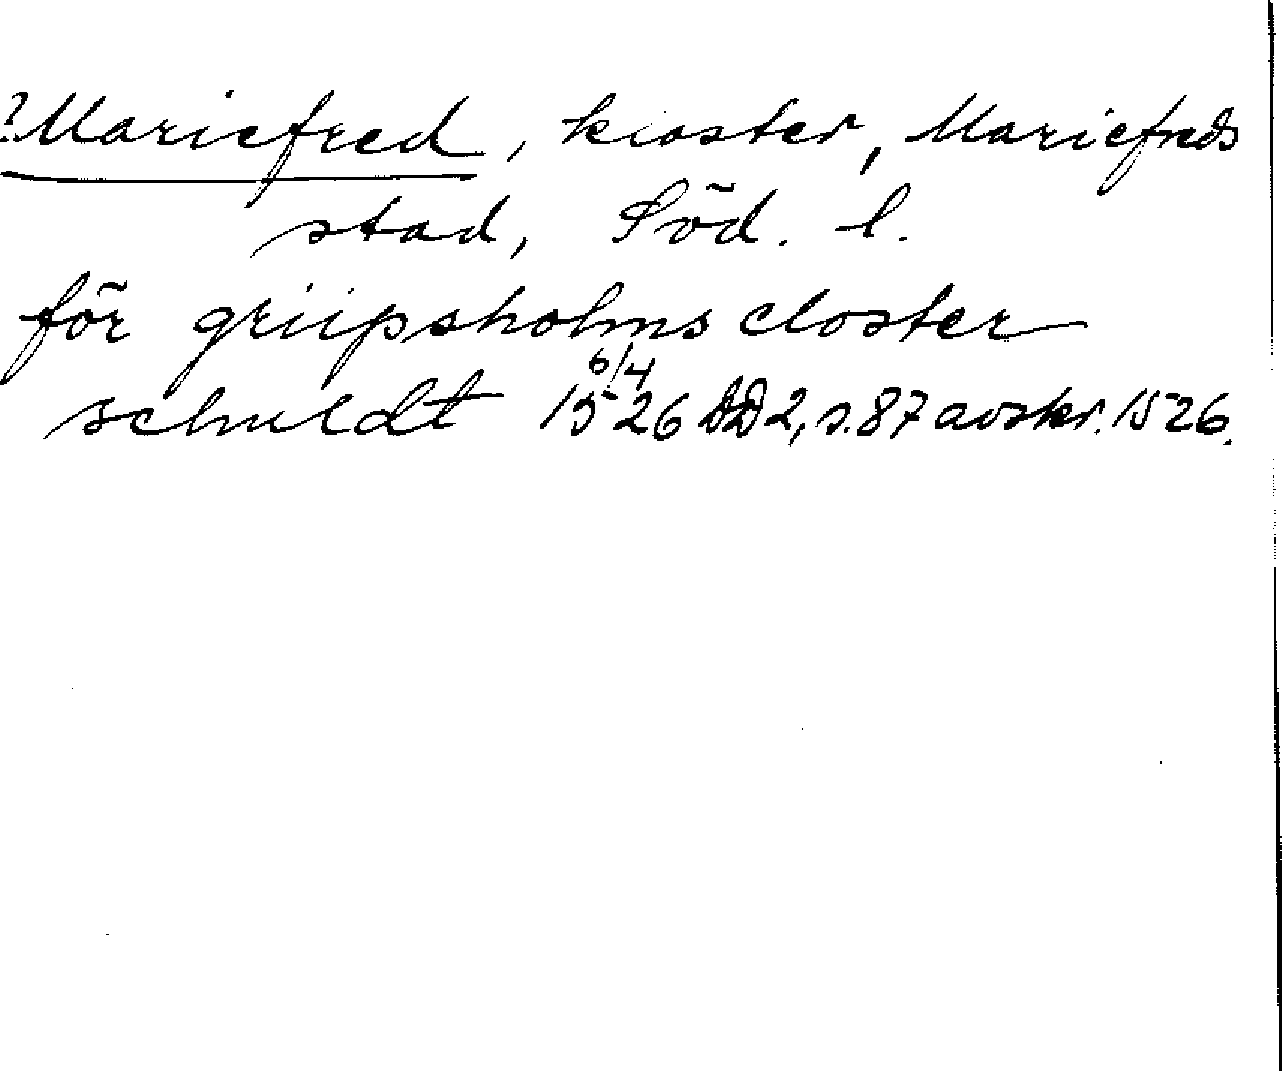 ? Mariefred, kloster, Mariefreds
stad, Söd. l.
för griipsholms closter
schuldt 6/4 1526 DD2, s. 87 avskr. 1526.